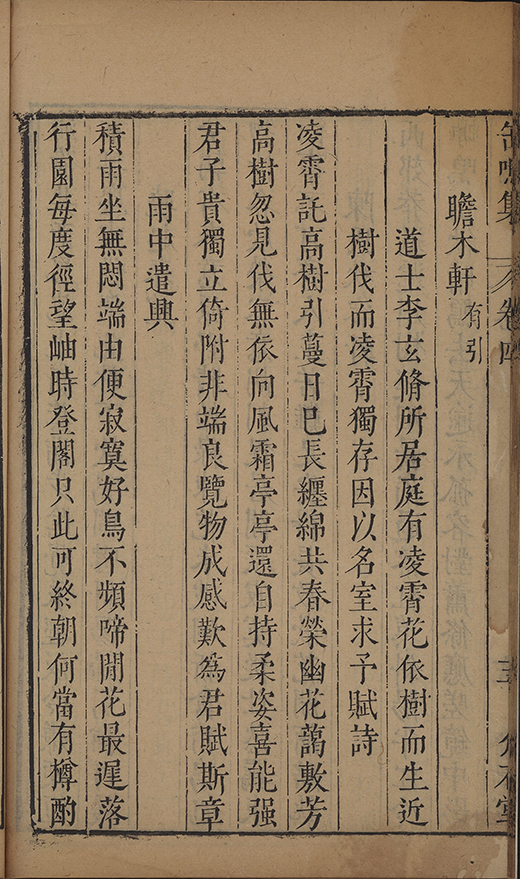 缶鳴集 卷四
瞻木軒有引
道士李玄脩所居庭有凌霄花依樹而生近
樹伐而凌霄獨存因以名室求予賦詩
凌霄託高樹引蔓日巳長纏綿共春榮幽花藹敷芳
高樹忽見伐無依向風霜亭亭還自持柔姿喜能强
君子貴獨立倚附非端良覽物成感歎為君賦斯章
雨中遣興
積雨坐無悶端由便寂寞好鳥不頻啼閒花最遲落
行園每度徑望岫時登閣只此可終朝何當有樽酌